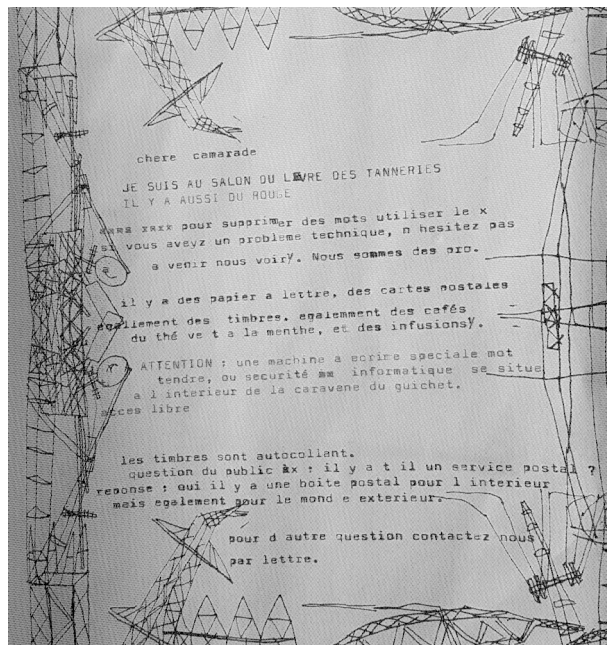 chere camarade
JE SUIS AU SALON DU LIVRE DES TANNERIES
IL Y A AUSSI DU ROUGE
xxxx xxxx pour supprimer des mots utiliser le x
si vous aveyz un probleme technique, n hesitez pas
a venir nous voiry. Nous sommes des pro.
il y a des papier a lettre, des cartes postales
egallement des timbres. egalemment des cafés
du thé ve t a la menthe, et des infusionsy.
ATTENTION : une machine a ecrire speciale mot
tendre, ou securité xx informatique se situe
a l interieur de la caravane du guichet.
acces libre
les timbres sont autocollant.
question du public xx : il y a t il un service postal ?
reponse : oui il y a une boite postal pour l interieur
mais egalement pour le mond e exterieur.
pour d autre question contactez nous
par lettre.